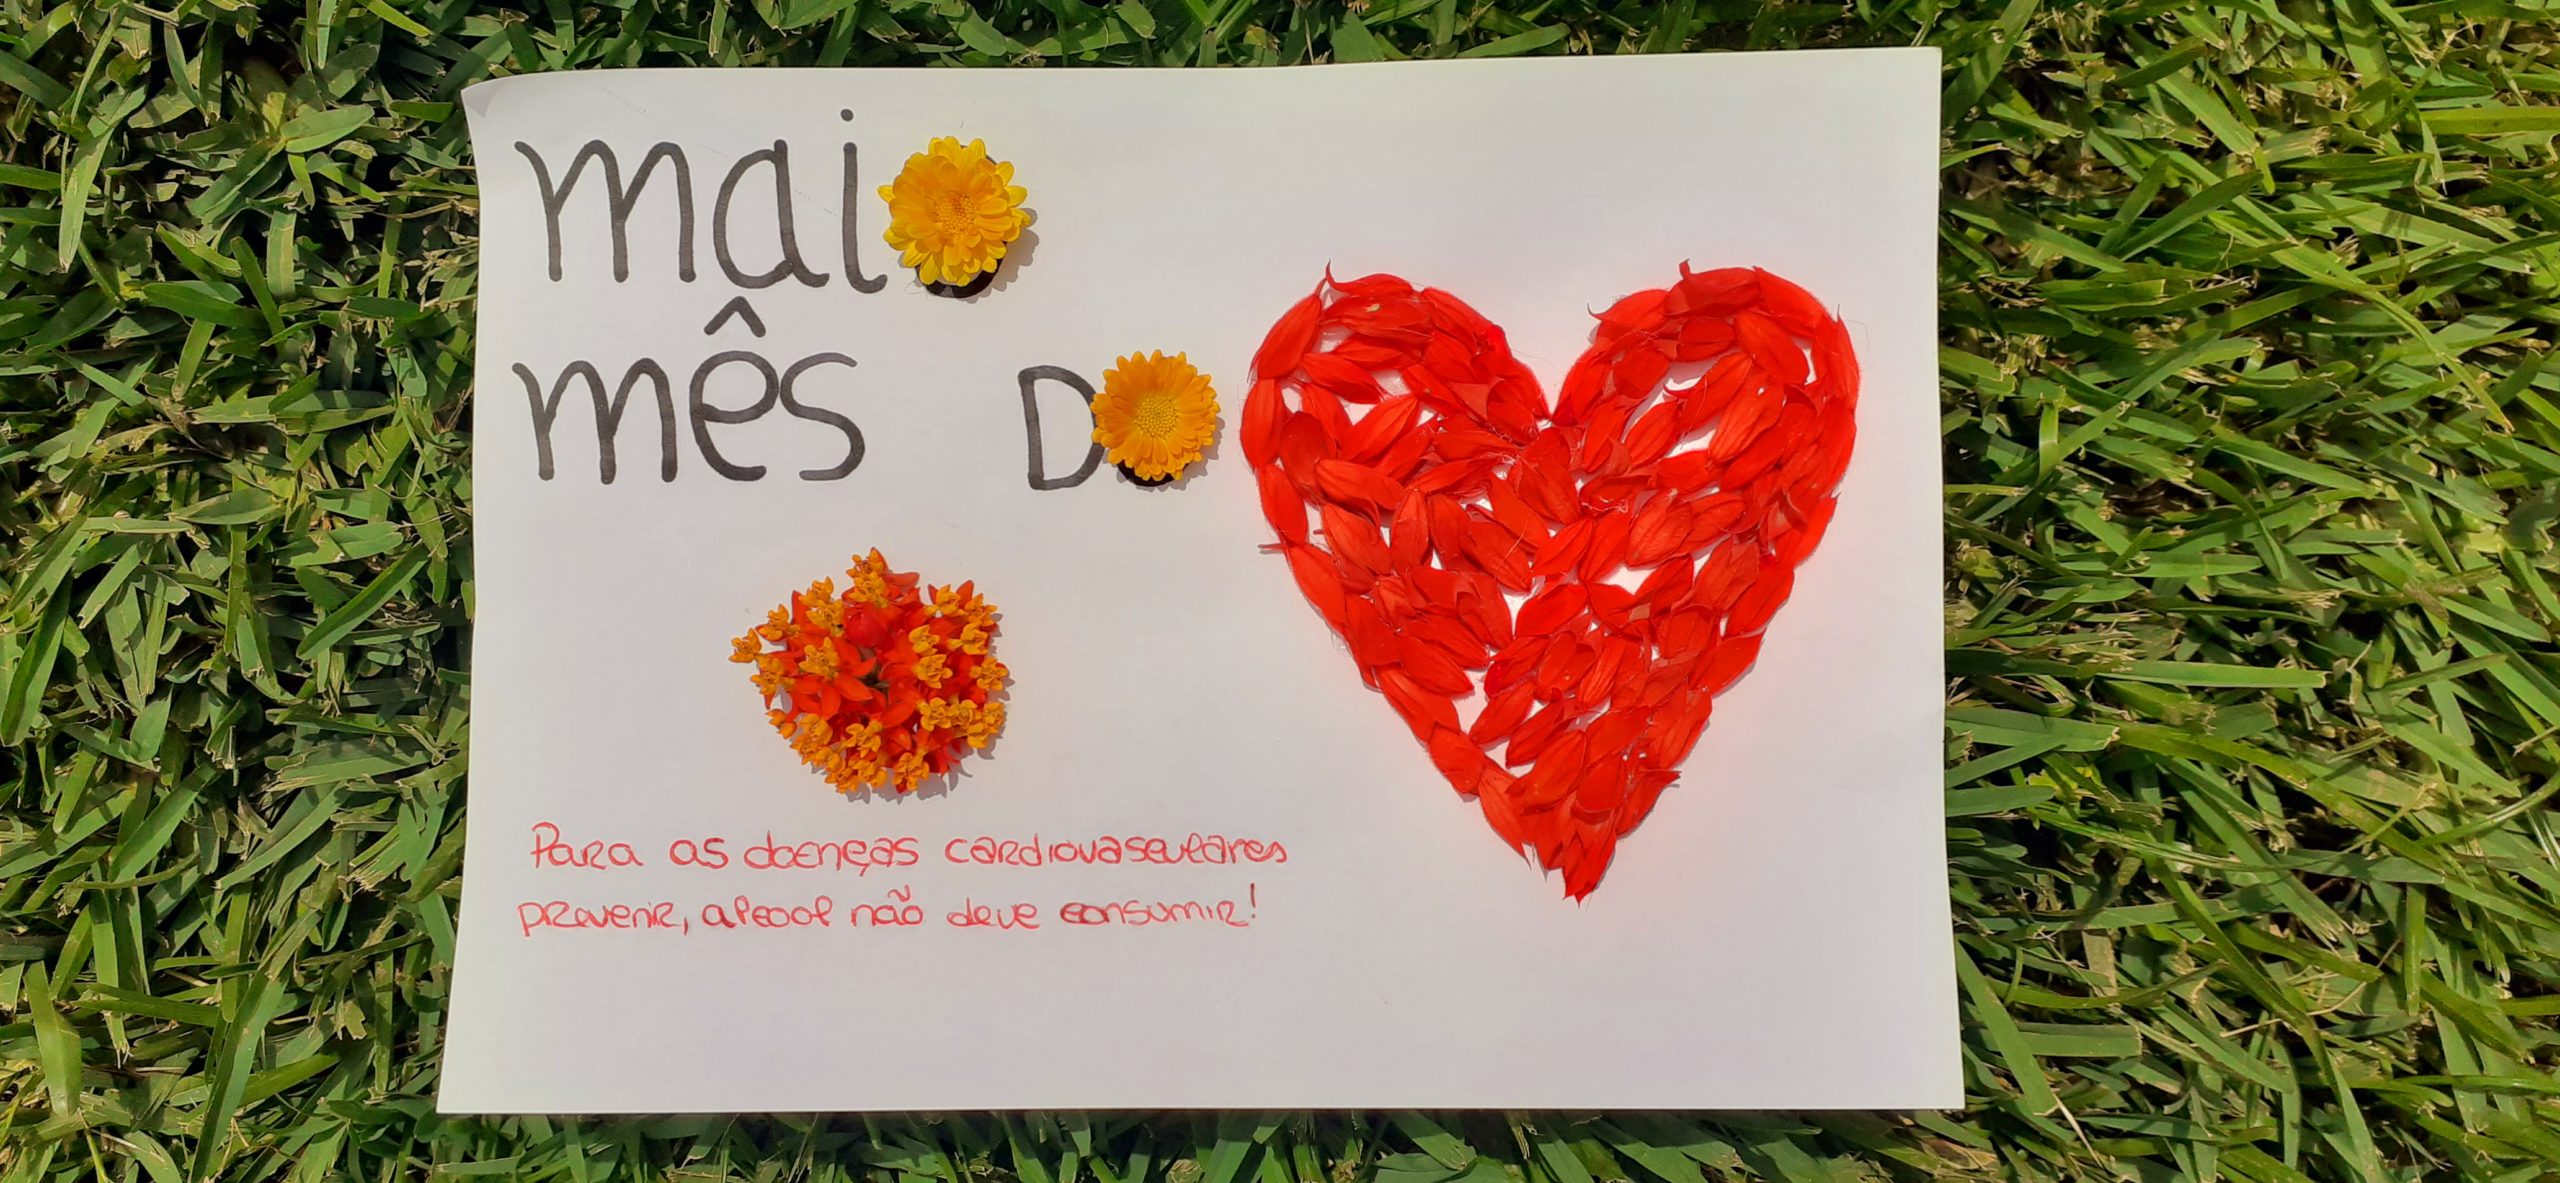 maio
mês Do
Para as doenças cardiovasculares
prevenir, alcool não deve consumir!